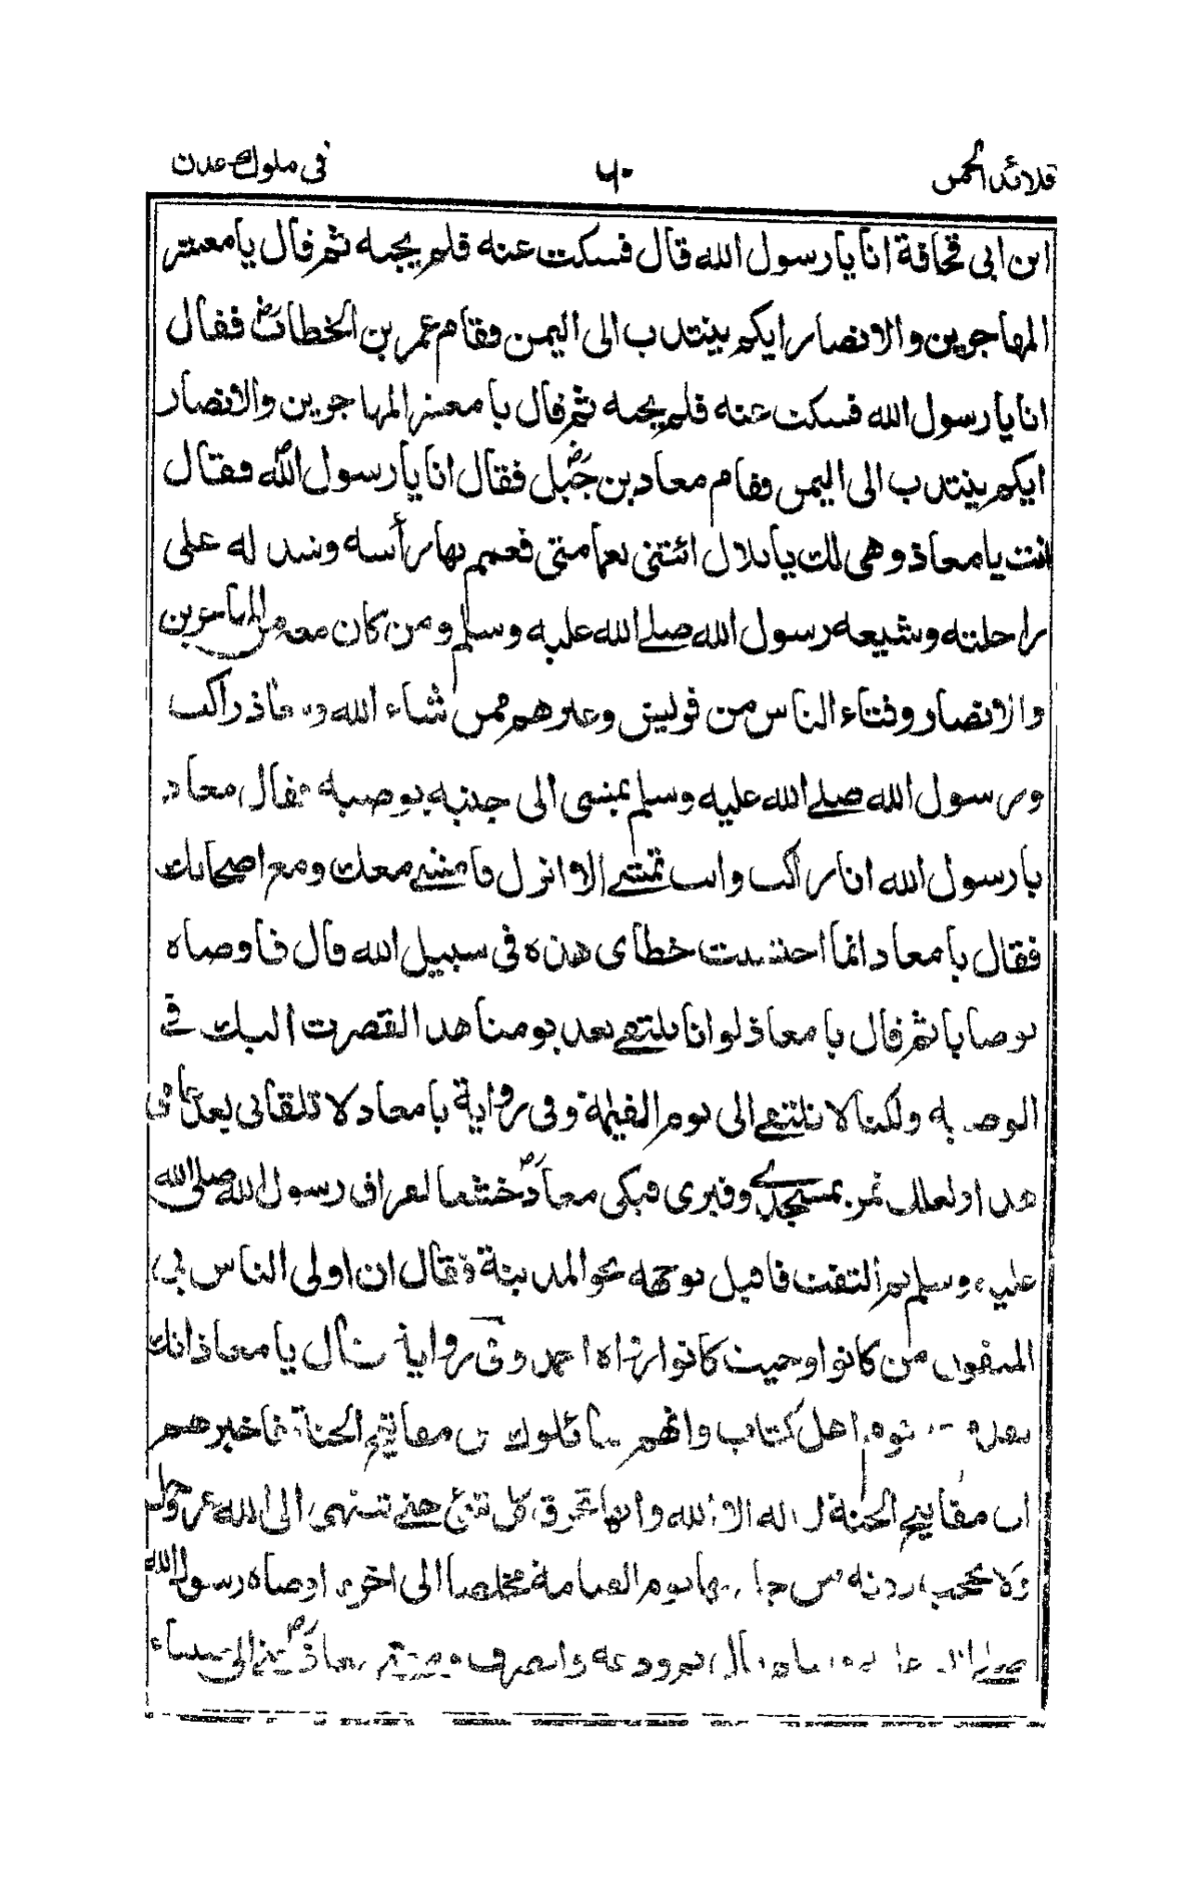 قلائد الجمن ٦٠ في ملوك عدن
ابن ابي قحافة انا يا رسول الله قال فسكت عنه فلم يجبه ثم قال يا معشر
المهاجرين والانصار ايكم ينتدب الى اليمن فقام عمر بن الخطاب رض فقال
انا يا رسول الله فسكت عنه فلم يجبه ثم قال يا معشر المهاجرين والانصار
ايكم ينتدب الى اليمن فقام معاذ بن جبل رض فقال انا يا رسول الله فقال
انت يا معاذ وهي لك يا بلال ائتني بعمامتي فعمم بها رأسه وشد له على
راحلته وشيعه رسول الله صلے الله عليه وسلم ومن كان معه من المهاجرين
والانصار وفتاء الناس من قريش وغيرهم ممن شاء الله ومعاذ راكب
ورسول الله صلے الله عليه وسلم يمشي الى جنبه يوصيه فقال معاذ
يا رسول الله انا راكب وانت تمشے الا انزل فامشے معك ومع اصحابك
فقال يا معاذ انما احتسبت خطاي هذه في سبيل الله قال فاوصاه
بوصايا ثم قال يا معاذ لو انا نلتقے بعد يومنا هذا لقصرت اليك فے
الوصية ولكنا لا نلتقے الى يوم القيمة وفي رواية يا معاذ لا تلقاني بعد عامي
هذا ولعلك تمر بمسجدے وقبري فبكى معاذ رض خشعا لفراق رسول الله صلى الله
عليه وسلم ثم التفت فاقبل بوجهه نحو المدينة فقال ان اولى الناس بي
المتقون من كانوا وحيث كانوا رواه احمد وفي رواية قال يا معاذ انك
تقدم قوم اهل كتاب وانهم سائلوك عن مفاتيح الجنة فاخبرهم
ان مفاتيح الجنة لا اله الا الله وانها تخرق كل شئ حتے تنتهي الى الله عز وجل
ولا تحجب دونه من جاء بها يوم القيامة مخلصا الى اخر ما اوصاه رسول الله
صلے الله عليه ثم ودعه وانصرف معاذ رض الى صنعاء